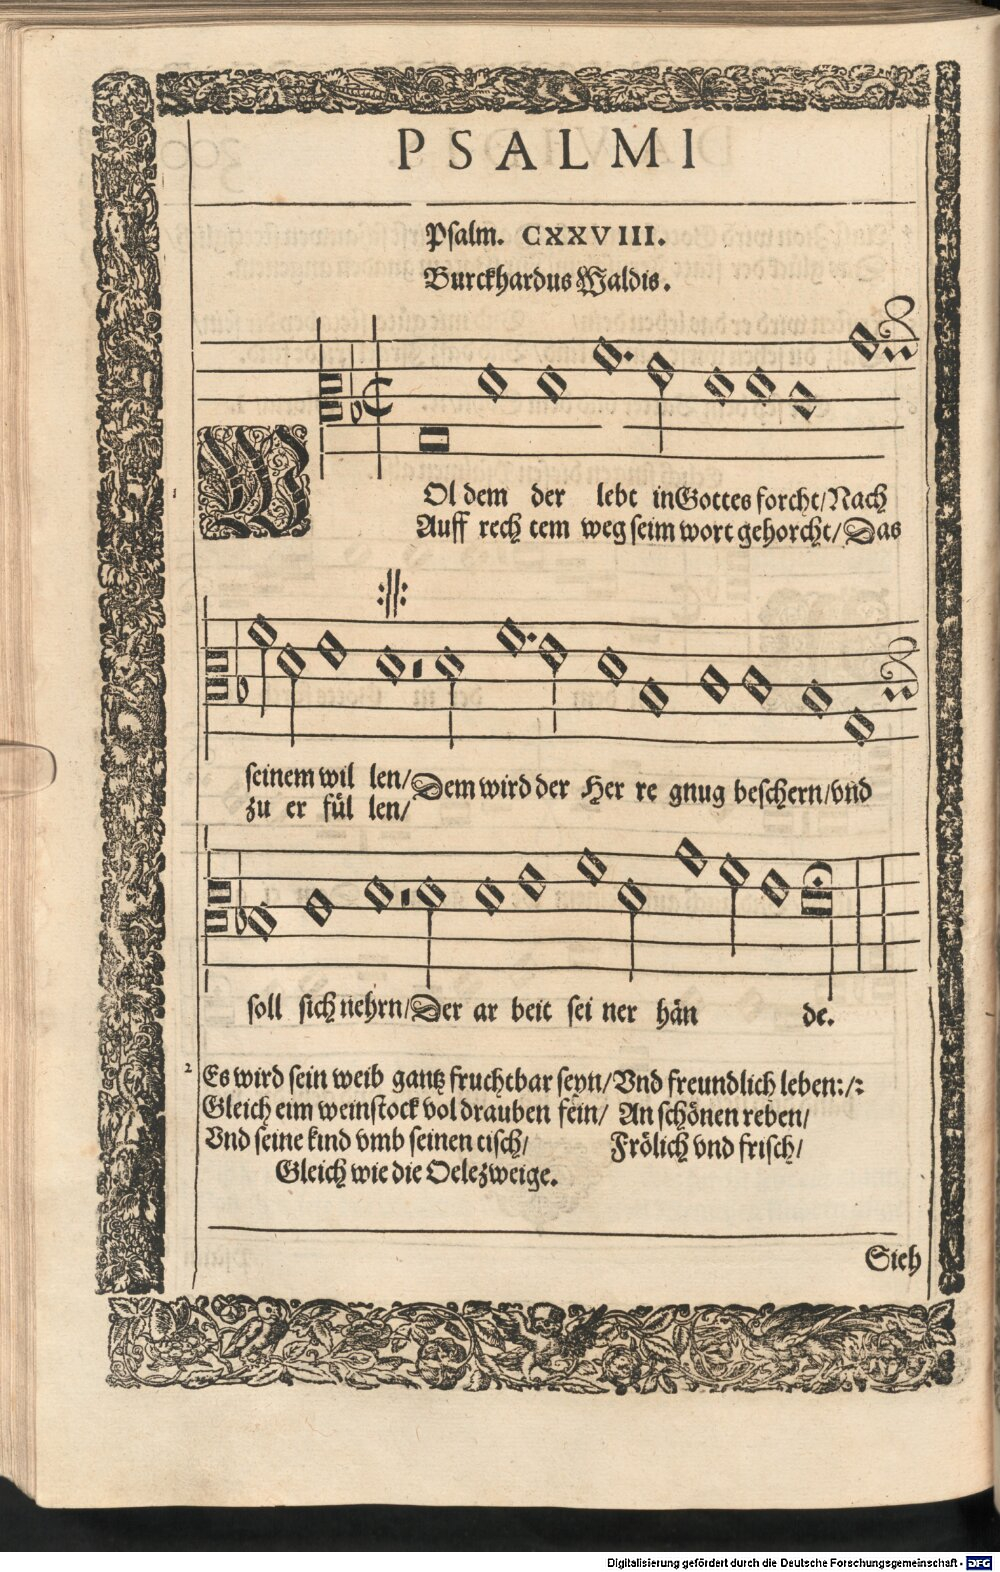 PSALMI
Psalm. CXXVIII.
Burckhardus Waldis.
W
Ol dem der lebt in Gottes forcht/ Nach
Auff rech tem weg seim wort gehorcht/ Das
seinem wil len/ Dem wird der Her re gnug beschern/ vnd
zu er fül len/
soll sich nehrn/ Der ar beit sei ner hän de.
2 Es wird sein weib gantz fruchtbar seyn/ Vnd freundlich leben:/:
Gleich eim weinstock vol drauben fein/ An schönen reben/
Vnd seine kind vmb seinen tisch/ Frölich vnd frisch/
Gleich wie die Oelezweige.
Sieh
Digitalisierung gefördert durch die Deutsche Forschungsgemeinschaft - DFG